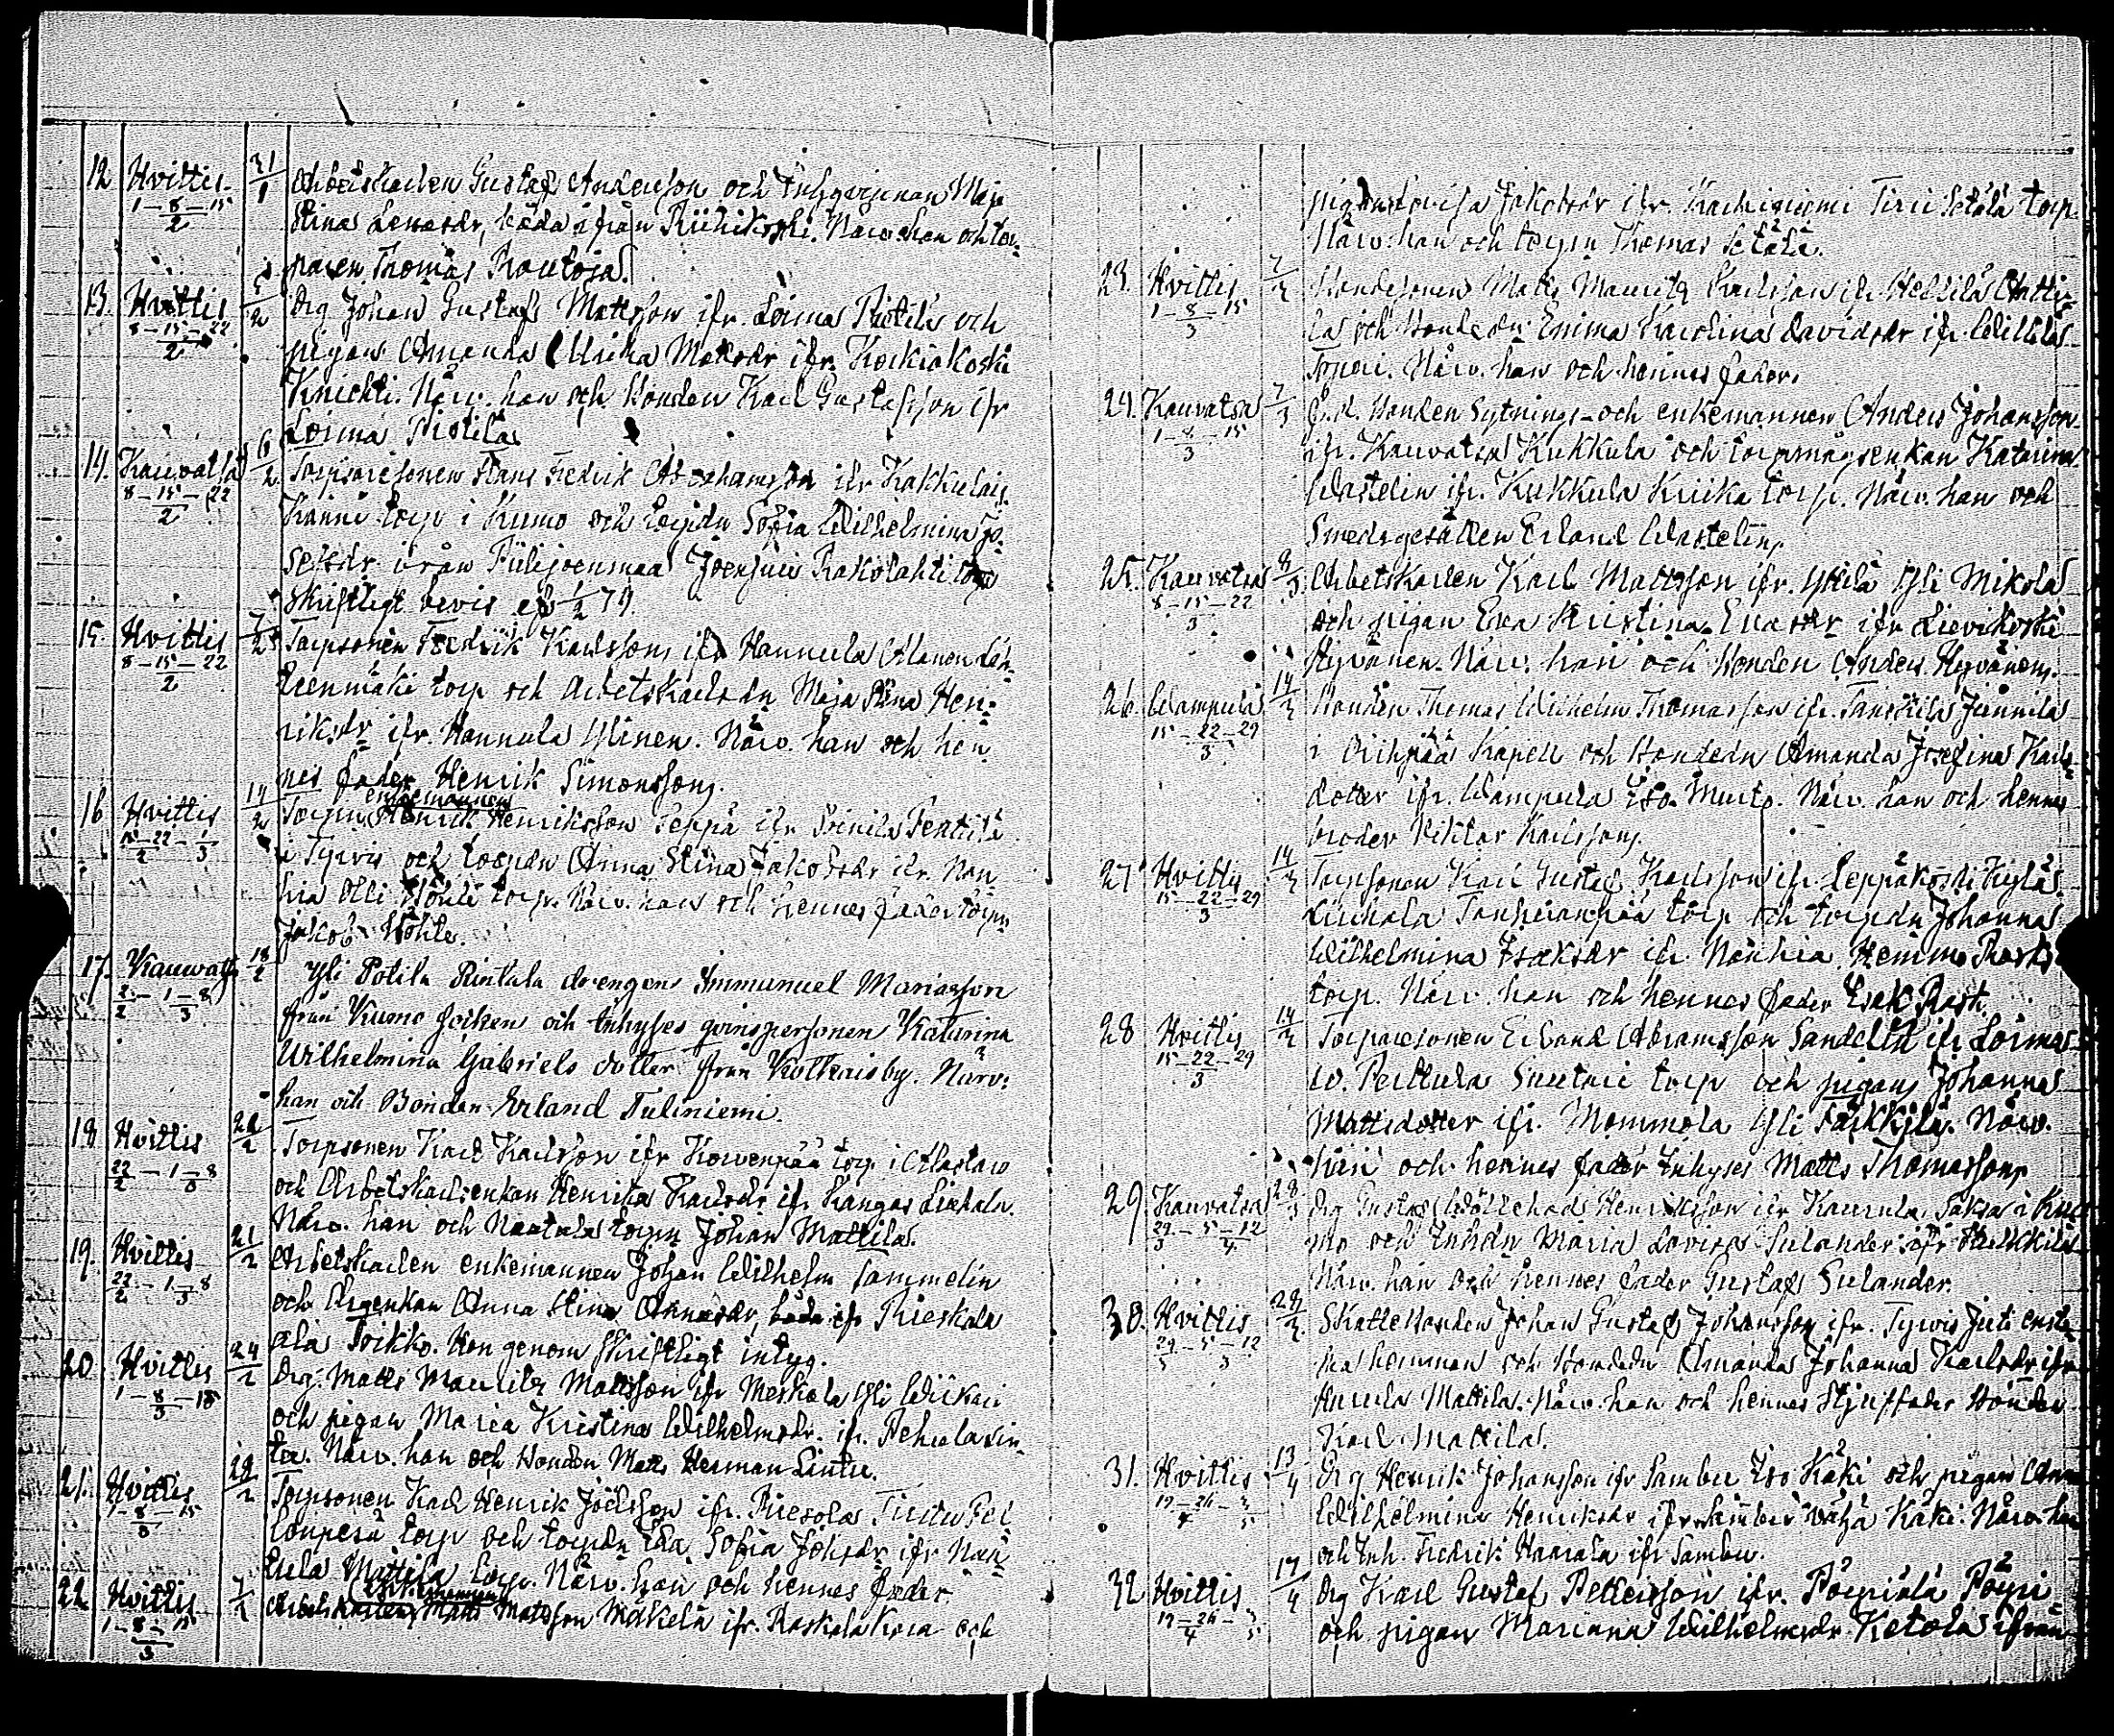 12 Hvittis 31/1 Arbetskarlen Gustaf Andersson och Inhyqvinnan Maja
1–8–15/2 Stina Lenasdr, båda ifrån Riihikoski. Närv. han och tor-
paren Thomas Rautoja.
13. Hvittis 5/2 Drg Johan Gustaf Mattsson ifr. Loima Pietilä och
8–15–22/2 pigan Amanda Ulrika Matsdr ifr. Korkiakoski
Knichti. Närv. han och Bonden Karl Gustafsson ifr
Loima Pietilä
14. Kauvatsa 6/2 Torparesonen Frans Fredrik Abrahamsson ifr Kakkulais
8–15–22/2 Kanni torp i Kumo och torpdr Sofia Wilhelmina Jo-
sefsdr ifrån Piilijoenmaa Joensuu Rakolahti torp
Skriftligt bevis af 1/2 79.
15. Hvittis 7/2 Torpsonen Fredrik Karlsson ifr Hannula Alanen
8–15–22/2 mäki torp och Arbetskarlsdr Maja Stina Hen-
riksdr ifr. Hannula Ylinen. Närv. han och hen
nes fader Henrik Simonsson.
enkemannen
16 Hvittis 14/2 Torpn Henrik Henriksson Seppä ifr Soinila Penttilä
15–22/2–1/3 i Tyrvis och torpdr Anna Stina Jakobsdr ifr. Nan
hia Olli torp. Närv. han och hennes fader torpn
Jakob
17. Kauvatsa 18/2 Yli Potila Rintala drengen Immanuel Mariasson
2/2–1–8/3 från Kumo socken och Inhyses qvinspersonen Katarina
Wilhelmina Gabriels dotter från Kulkaisby. Närv:
han och Bonden Erland Tuliniemi.
18. Hvittis 20/2 Torpsonen Karl Karlsson ifr Korvenpää torp i Alastaro
22/2–1–8/3 och Arbetskarlsenkan Henrika Karlsdr ifr Kangas Liuhala
Närv. han och torpn Johan Mattila.
19. Hvittis 21/2 Arbetskarlen enkemannen Johan Wilhelm Sammelin
22/2–1–8/3 och Drgenkan Anna Stina Annasdr, båda ifr Rieskala
ala Toikko. Hon genom skriftligt intyg.
20 Hvittis 24/2 Drg. Matts Maurits Mattsson ifr Meskala Yli Wikari
1–8–15/3 och pigan Maria Kristina Wilhelmsdr. ifr. Pehula Sin
tu. Närv. han och Bonden Matts Herman Sintu.
21. Hvittis 29/2 Torpsonen Karl Henrik Joelsson ifr. Piesola
1–8–15/3 torp och torpdn Eva Sofia Johsdr ifr
Mattila torp. Närv. han och hennes fader.
22 Hvittis 7/2 Arbetskarlen Matts Matsson Mäkelä ifr. Raskala Kosa och
1–8–15/3
pigan Lovisa Jakobsdr ifr. Karhiniemi Tirri Setälä torp.
Närv. han och torpn Thomas Setälä.
23. Hvittis 7/2 Bondesonen Matts Maurits Karlsson ifr. Heikilä Antti-
1–8–15/3 la och Bondedr Emma Karolina Davidsdr ifr Wilkilä
Soperi. Närv. han och hennes fader.
24. Kauvatsa 7/3 F.d. Bonden Sytnings- och enkemannen Anders Johansson
1–8–15/3 ifr. Kauvatsa Kukkula och torpmågsenkan Katarina
Wastelin ifr. Kukkula Kriika torp. Närv. han och
Smedsgesällen Erland Wastelin.
25. Kauvatsa 8/3 Arbetskarlen Karl Mattsson ifr. Yttilä Yli Mikola
8–15–22/3 och pigan Eva Kristina Evasdr ifr Lievikoski
Hyvänen. Närv. han och Bonden Anders Hyvänen.
26. Wampula 14/3 Bonden Thomas Wilhelm Thomasson ifr. Tanskila Junnila
15–22–29/3 i Riihipää Kapell och Bondedn Amanda Josefina Karls-
dotter ifr. Wampula Iso Murto. Närv. han och hennes
broder Viktor Karlsson.
27 Hvittis 14/3 Torpsonen Karl Gustaf Karlsson ifr. Leppäkoski Kylä
15–22–29/3 Liuhala torp och torpdn Johanna
Wilhelmina Isaksdr ifr. Nanhia Heinmo Rasks
torp. Närv. han och hennes fader Isak Rask.
28 Hvittis 14/3 Torparesonen Erland Abramsson Sandelin ifr Loima
15–22–29/3 torp och pigan Johanna
Mattsdotter ifr. Mommola Yli Tärkkilä. Närv.
han och hennes fader Inhyses Matts Thomasson.
29 Kauvatsa 28/3 Drg Gustaf Henriksson ifr Kaurula Saksa i Ku
29/3–5–12/4 mo och Inhdr Maria Lovisa Sulander ifr
Närv. han och hennes fader Gustaf Sulander.
30. Hvittis 29/3 Skattebonden Johan Gustaf Johansson ifr. Tyrvis Juti ensta
29–5–12 ka hemman och Bondedn Amanda Johanna Karlsdr ifr
Mattila. Närv. han och hennes styffader Bonden
Karl Mattila.
31. Hvittis 13/4 Drg Henrik Johansson ifr Sambu Iso Käki och pigan Anna
19–26/4–3/5 Wilhelmina Henriksdr ifrån Sambu Vähä Käki. Närv. han
och Inh. Fredrik Haarala ifr Sambu.
32 Hvittis 17/4 Drg Karl Gustaf Pettersson ifr. Pörpälä Pörri
19–26/4–3/5 och pigan Mariana Wilhelmsdr Ketola ifrån